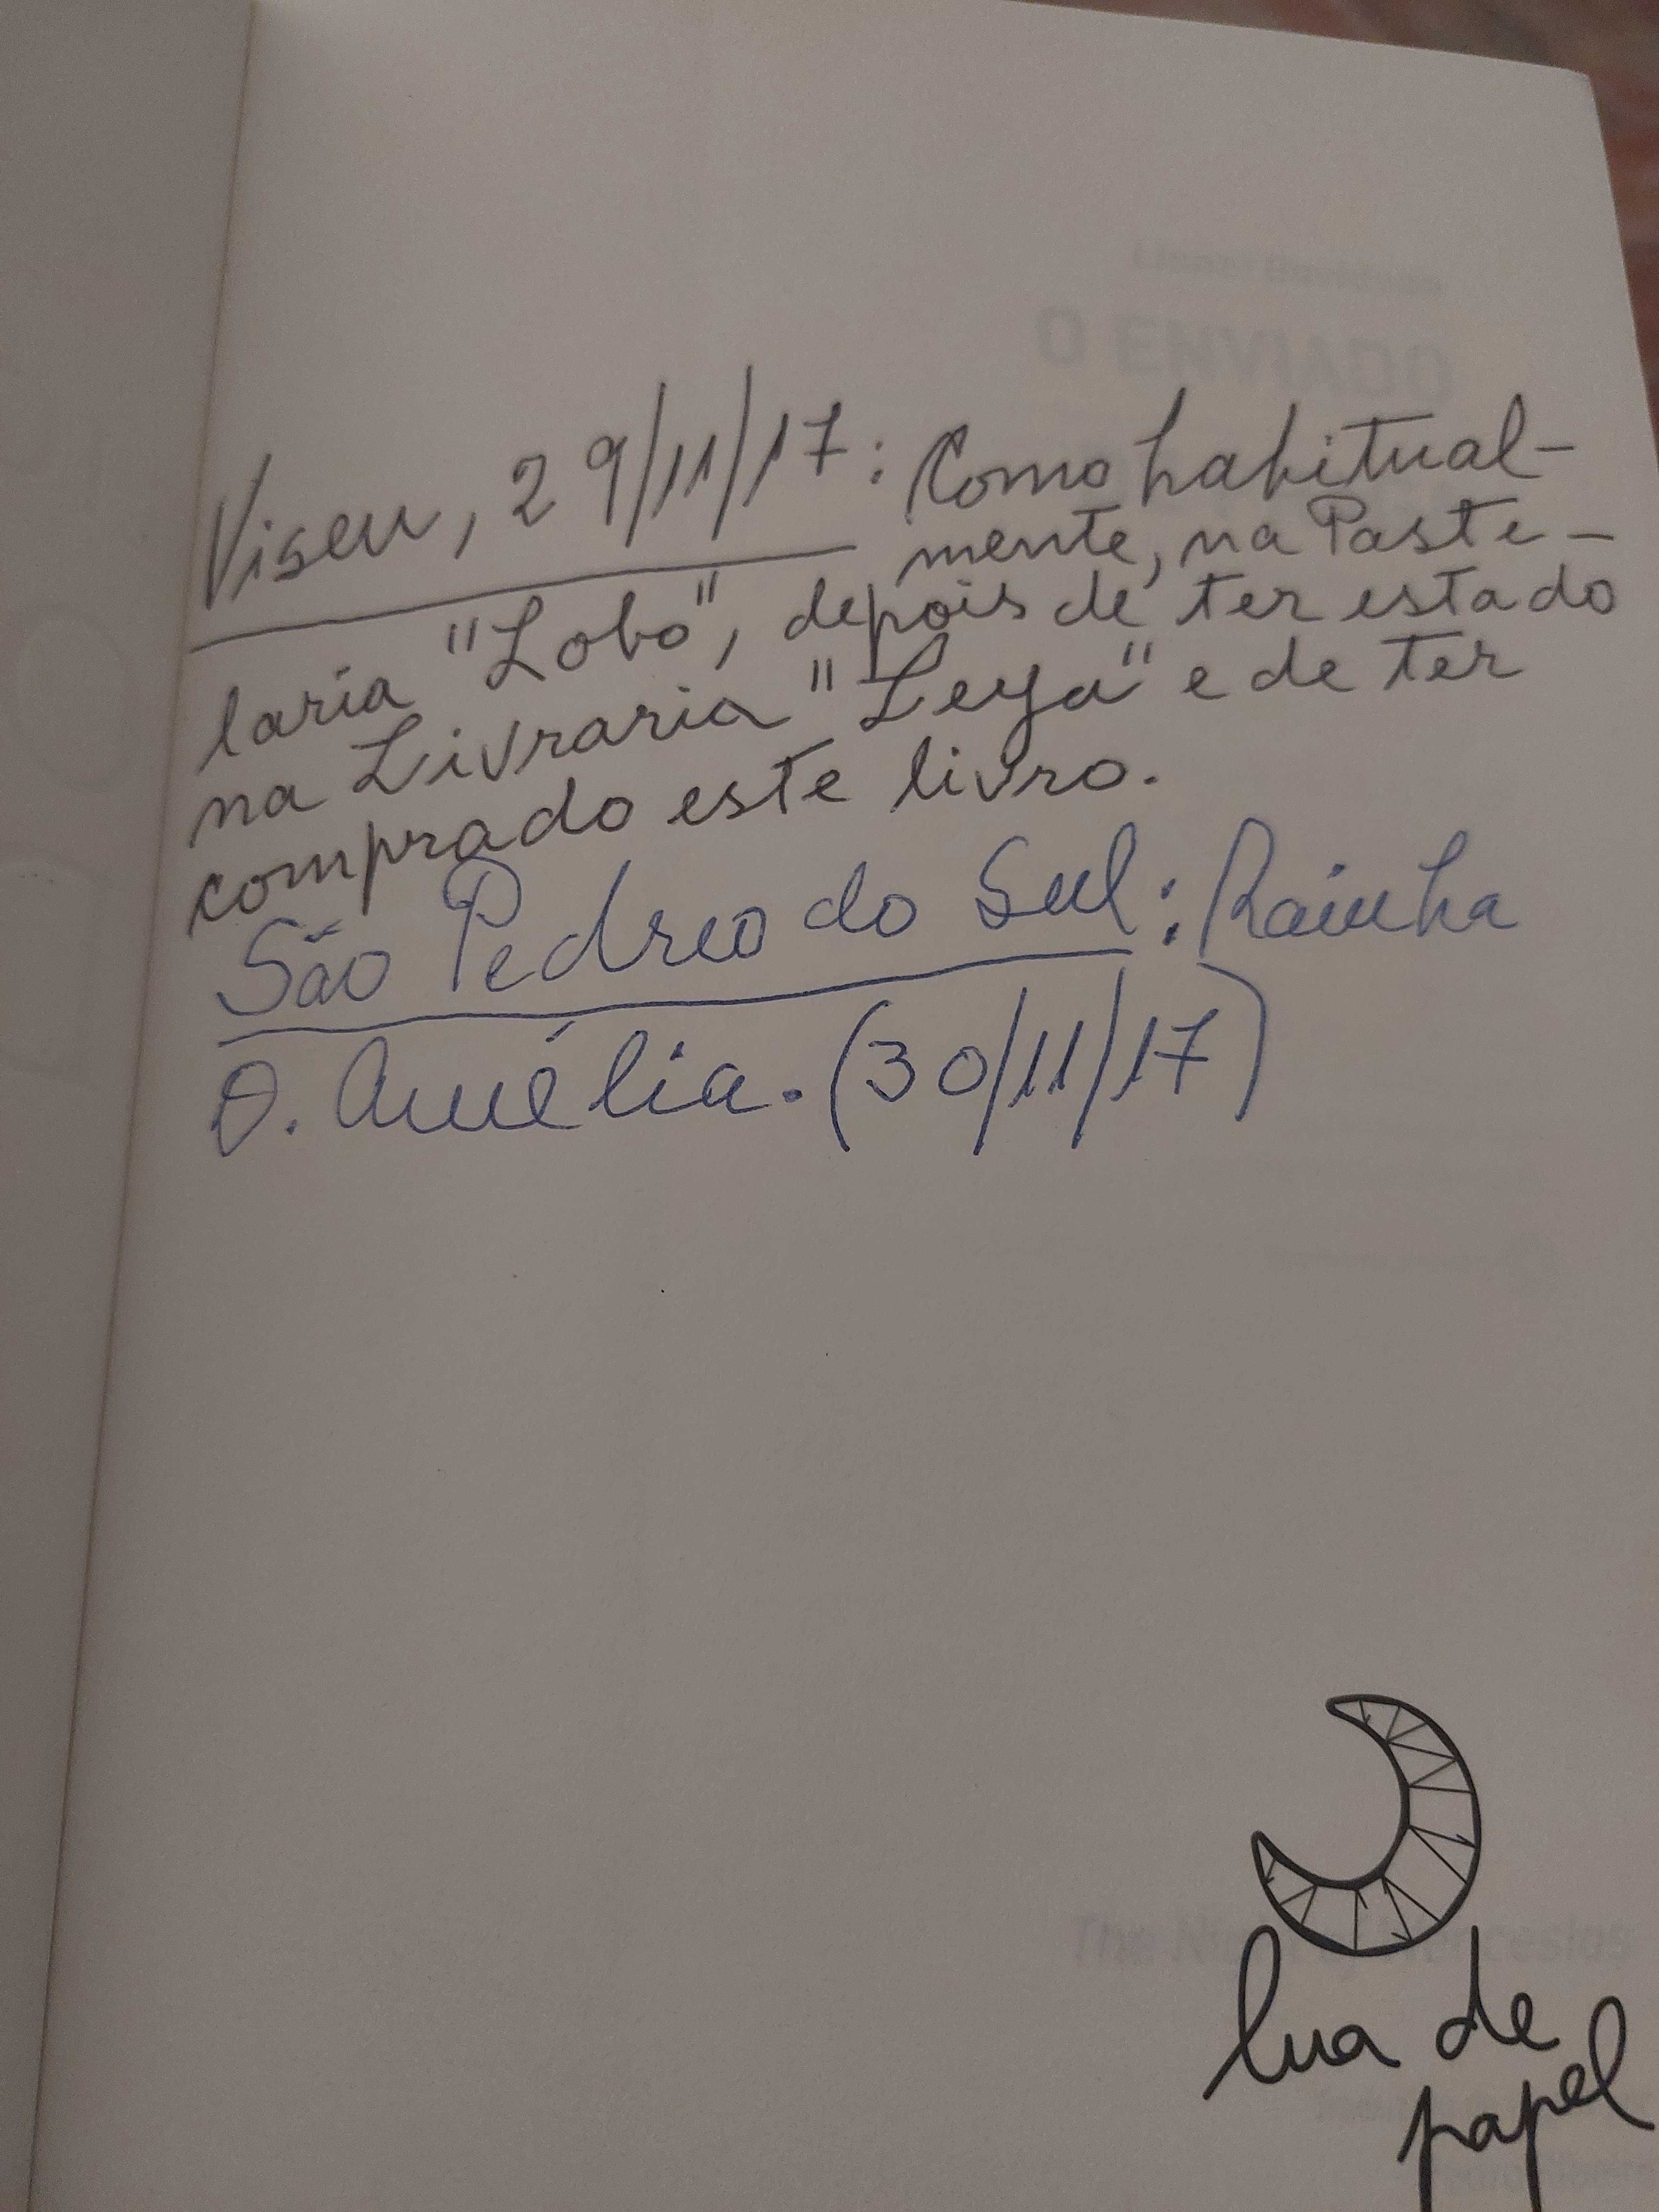 O ENVIADO
Viseu, 29/11/17: Como habitual-
mente, na Paste-
laria "Lobo", depois de ter estado
na Livraria "Leya" e de ter
comprado este livro.
São Pedro do Sul: Rainha
D. Amélia. (30/11/17)
lua de
papel